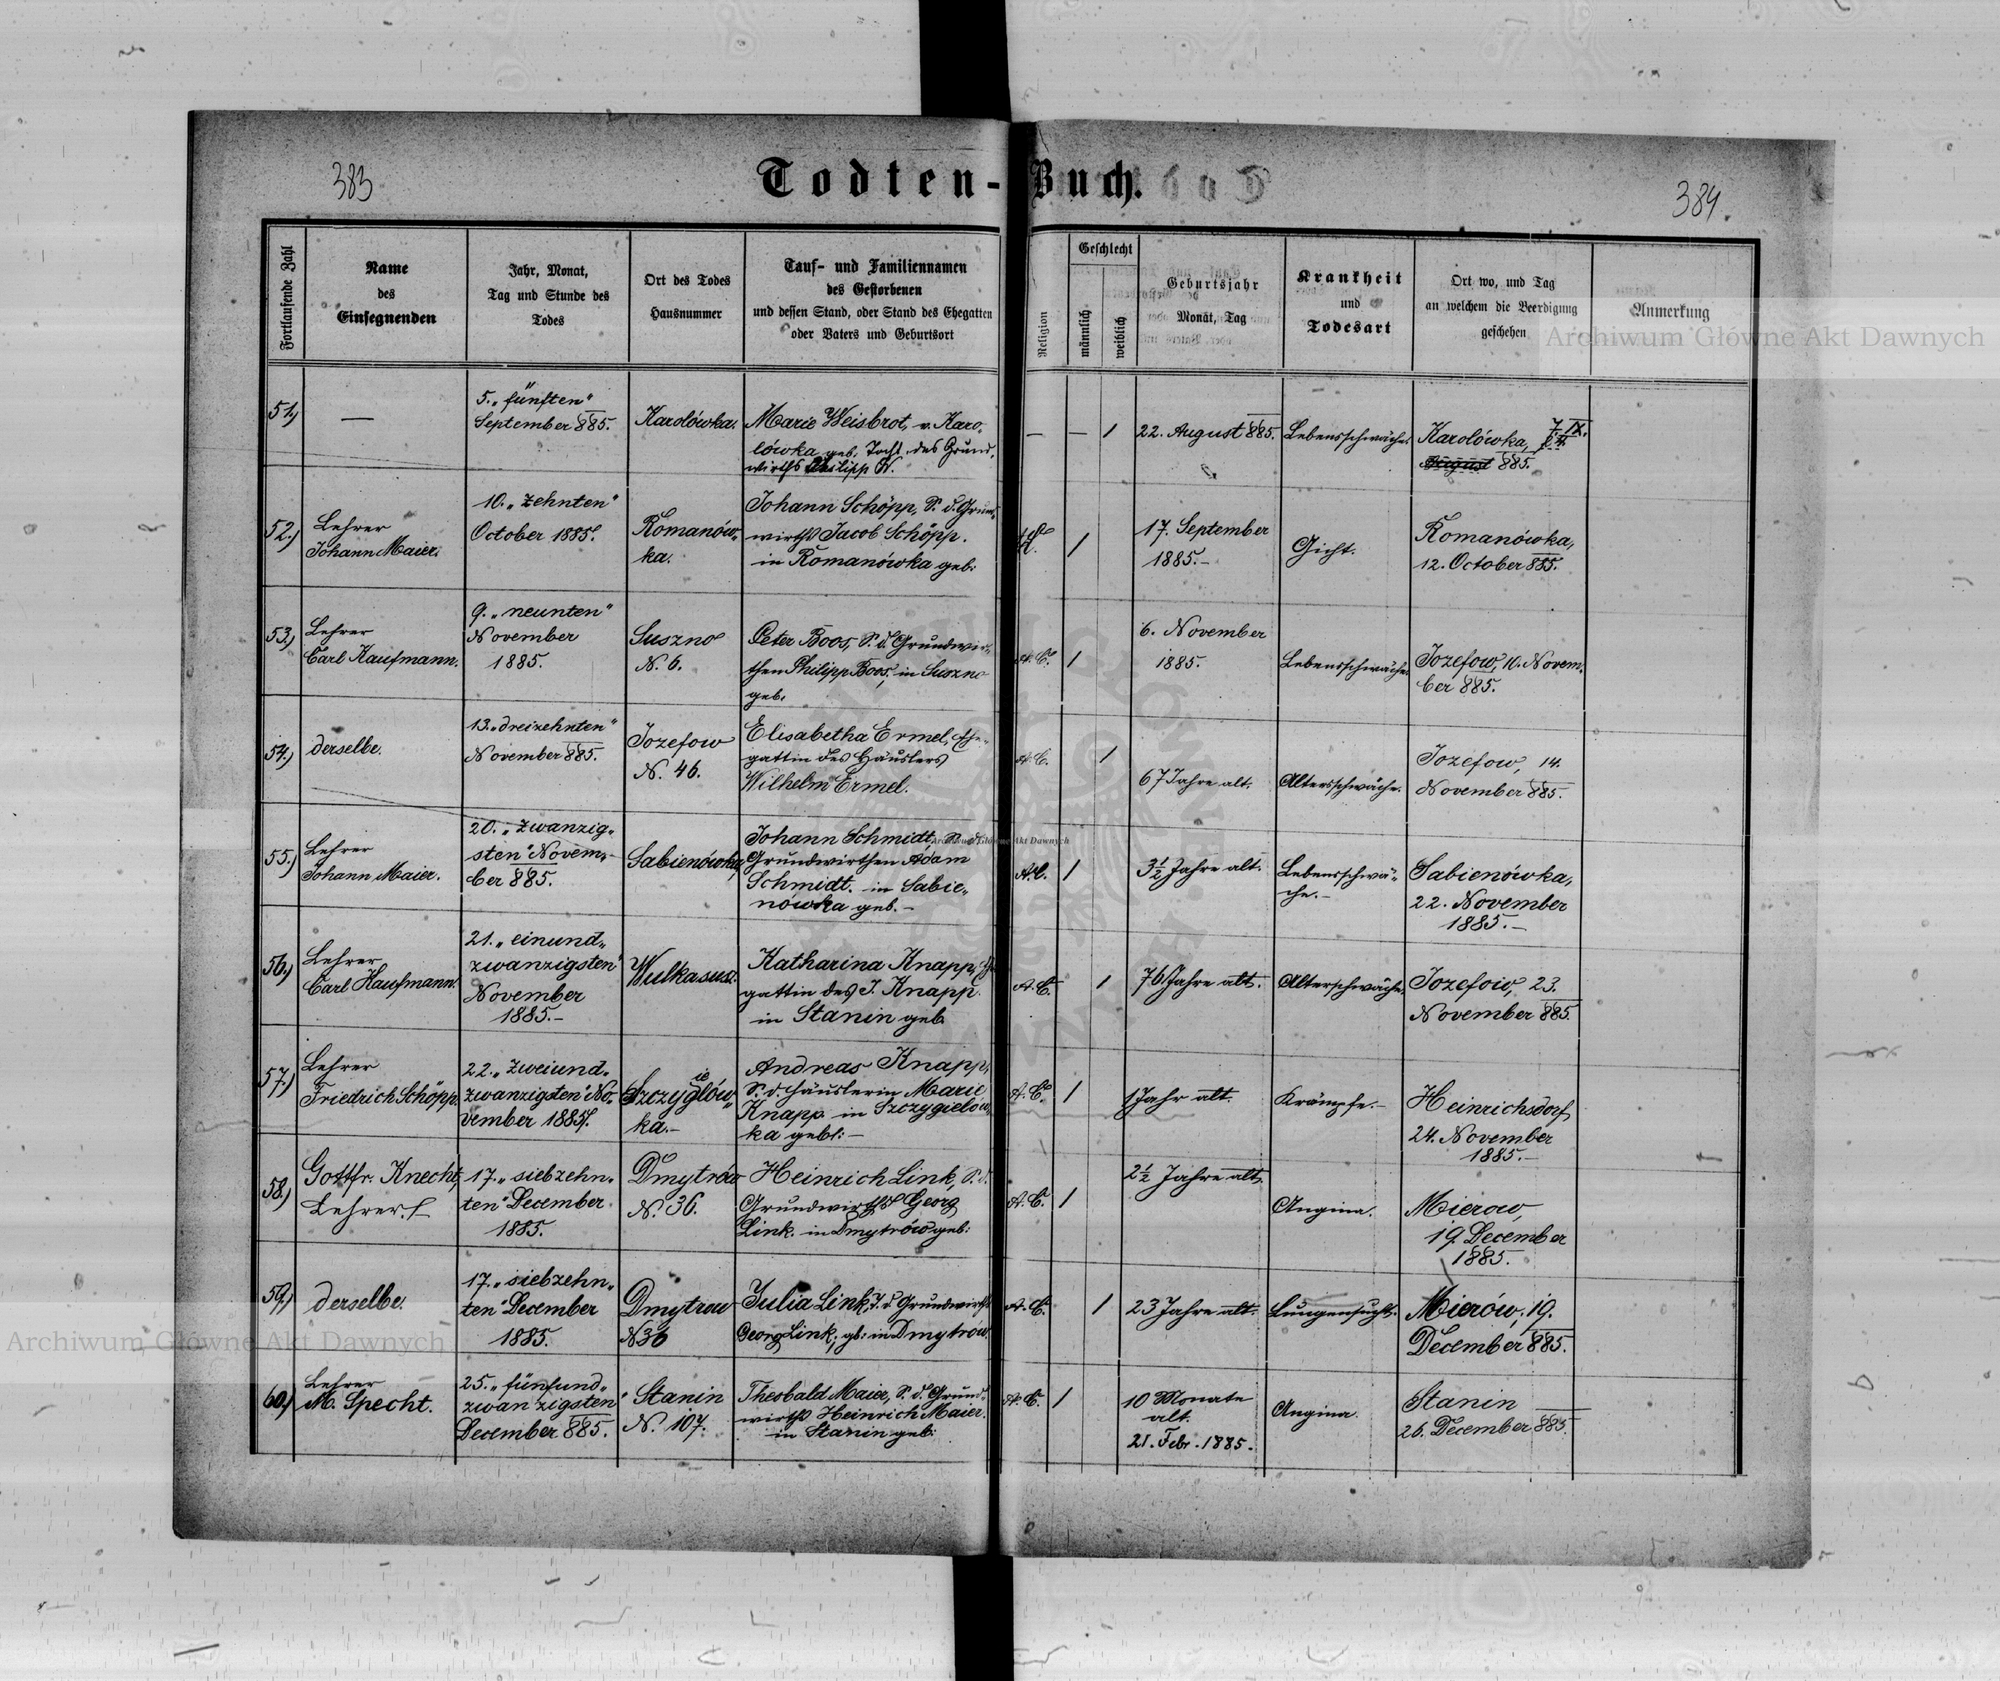 383
Todten-Buch.
384.
Fortlaufende Zahl
Name
des
Einsegnenden
Jahr, Monat,
Tag und Stunde des
Todes
Ort des Todes
Hausnummer
Tauf- und Familiennamen
des Gestorbenen
und dessen Stand, oder Stand des Ehegatten
oder Vaters und Geburtsort
Religion
Geschlecht
männlich
weiblich
Geburtsjahr
Monat, Tag
Krankheit
und
Todesart
Ort wo, und Tag
an welchem die Beerdigung
geschehen
Anmerkung
Archiwum Główne Akt Dawnych
51.)
—
5. „fünften"
September 885.
Karolówka.
Marie Weisbrot, v. Karo-
lówka geb, Tocht. des Grund-
wirths Philipp W.
— — 1
22. August 885.
Lebensschwäche.
Karolówka, 7. IX.
August 885.
52.)
Lehrer
Johann Maier.
10. „zehnten"
October 1885.
Romanów-
ka.
Johann Schöpp, S. d. Grund-
wirths Jacob Schöpp.
in Romanówka geb:
1
17. September
1885.-
Gicht.
Romanówka,
12. October 885.
53.)
Lehrer
Carl Kaufmann.
9. „neunten"
November
1885.
Suszno
N. 6.
Peter Boos, S. d. Grundwir-
then Philipp Boos, in Suszno
geb.
A. C. 1
6. November
1885.
Lebensschwäche.
Jozefow, 10. Novem-
ber 885.
54.)
derselbe.
13. „dreizehnten"
November 885.
Jozefow
N. 46.
Elisabetha Ermel, Ehe-
gattin des Häuslers
Wilhelm Ermel.
A. C. 1
67 Jahre alt.
Altersschwäche.
Jozefow, 14.
November 885.
55.)
Lehrer
Johann Maier.
20. „zwanzig-
sten" Novem-
ber 885.
Sabienówka,
Johann Schmidt, S. d.
Grundwirthen Adam
Schmidt. in Sabie-
nówka geb. -
Archiwum Główne Akt Dawnych
A. C. 1
3½ Jahre alt.
Lebensschwä-
che.-
Sabienówka,
22. November
1885.-
56.)
Lehrer
Carl Kaufmann.
21. „einund-
zwanzigsten"
November
1885.-
Wulkasusz.
Katharina Knapp, Ehe-
gattin des J. Knapp.
in Stanin geb.
A. C. 1
76 Jahre alt.
Alterschwäche.
Jozefow, 23.
November 885.
57.)
Lehrer
Friedrich Schöpp.
22. „zweiund-
zwanzigsten" No-
vember 1885.
ie
Szczyglów-
ka.-
Andreas Knapp,
S. d. Häuslerin Marie
Knapp in Szczygielów-
ka gebt: -
A. C. 1
1 Jahr alt.
Krämpfe.-
Heinrichsdorf
24. November
1885.-
58.)
Gottfr. Knecht,
Lehrer.
17. „siebzehn-
ten" December
1885.
Dmytrów
N. 36.
Heinrich Link, S. d.
Grundwirths Georg
Link. in Dmytrów geb:
A. C. 1
2½ Jahre alt.
Angina.
Mierow,
19. December
1885.
59.)
derselbe.
17. „siebzehn-
ten" December
1885.
Dmytrow
N 36
Julia Link, T. d. Grundwirths
Georg Link, gb: in Dmytrow.
A. C. 1
23 Jahre alt.
Lungensucht.
Mierów, 19.
December 885.
Archiwum Główne Akt Dawnych
60.)
Lehrer
M. Specht.
25. „fünfund-
zwanzigsten"
December 885.
Stanin
N. 107.
Theobald Maier, S. d. Grund-
wirths Heinrich Maier.
in Stanin geb:
A. C. 1
10 Monate
alt.
21. Febr. 1885.
Angina.
Stanin
26. December 885.